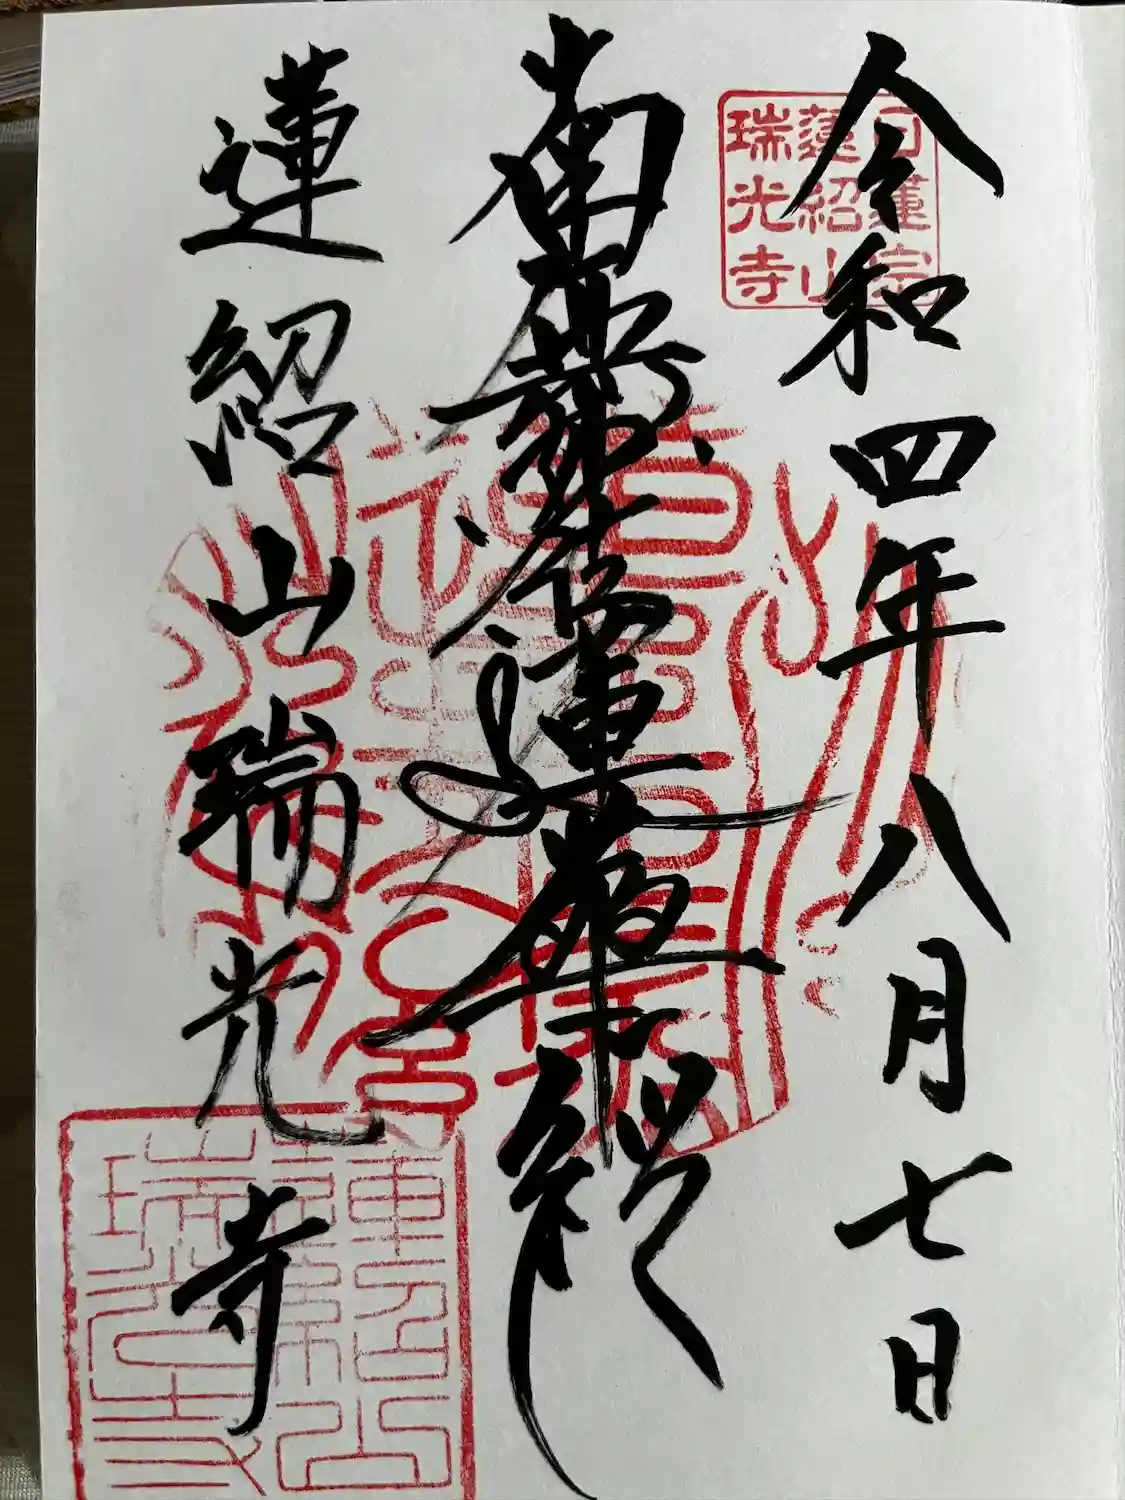 令和四年八月七日
日蓮宗
蓮紹山
瑞光寺
南無妙法蓮華経
蓮紹山瑞光寺
蓮紹山
瑞光寺